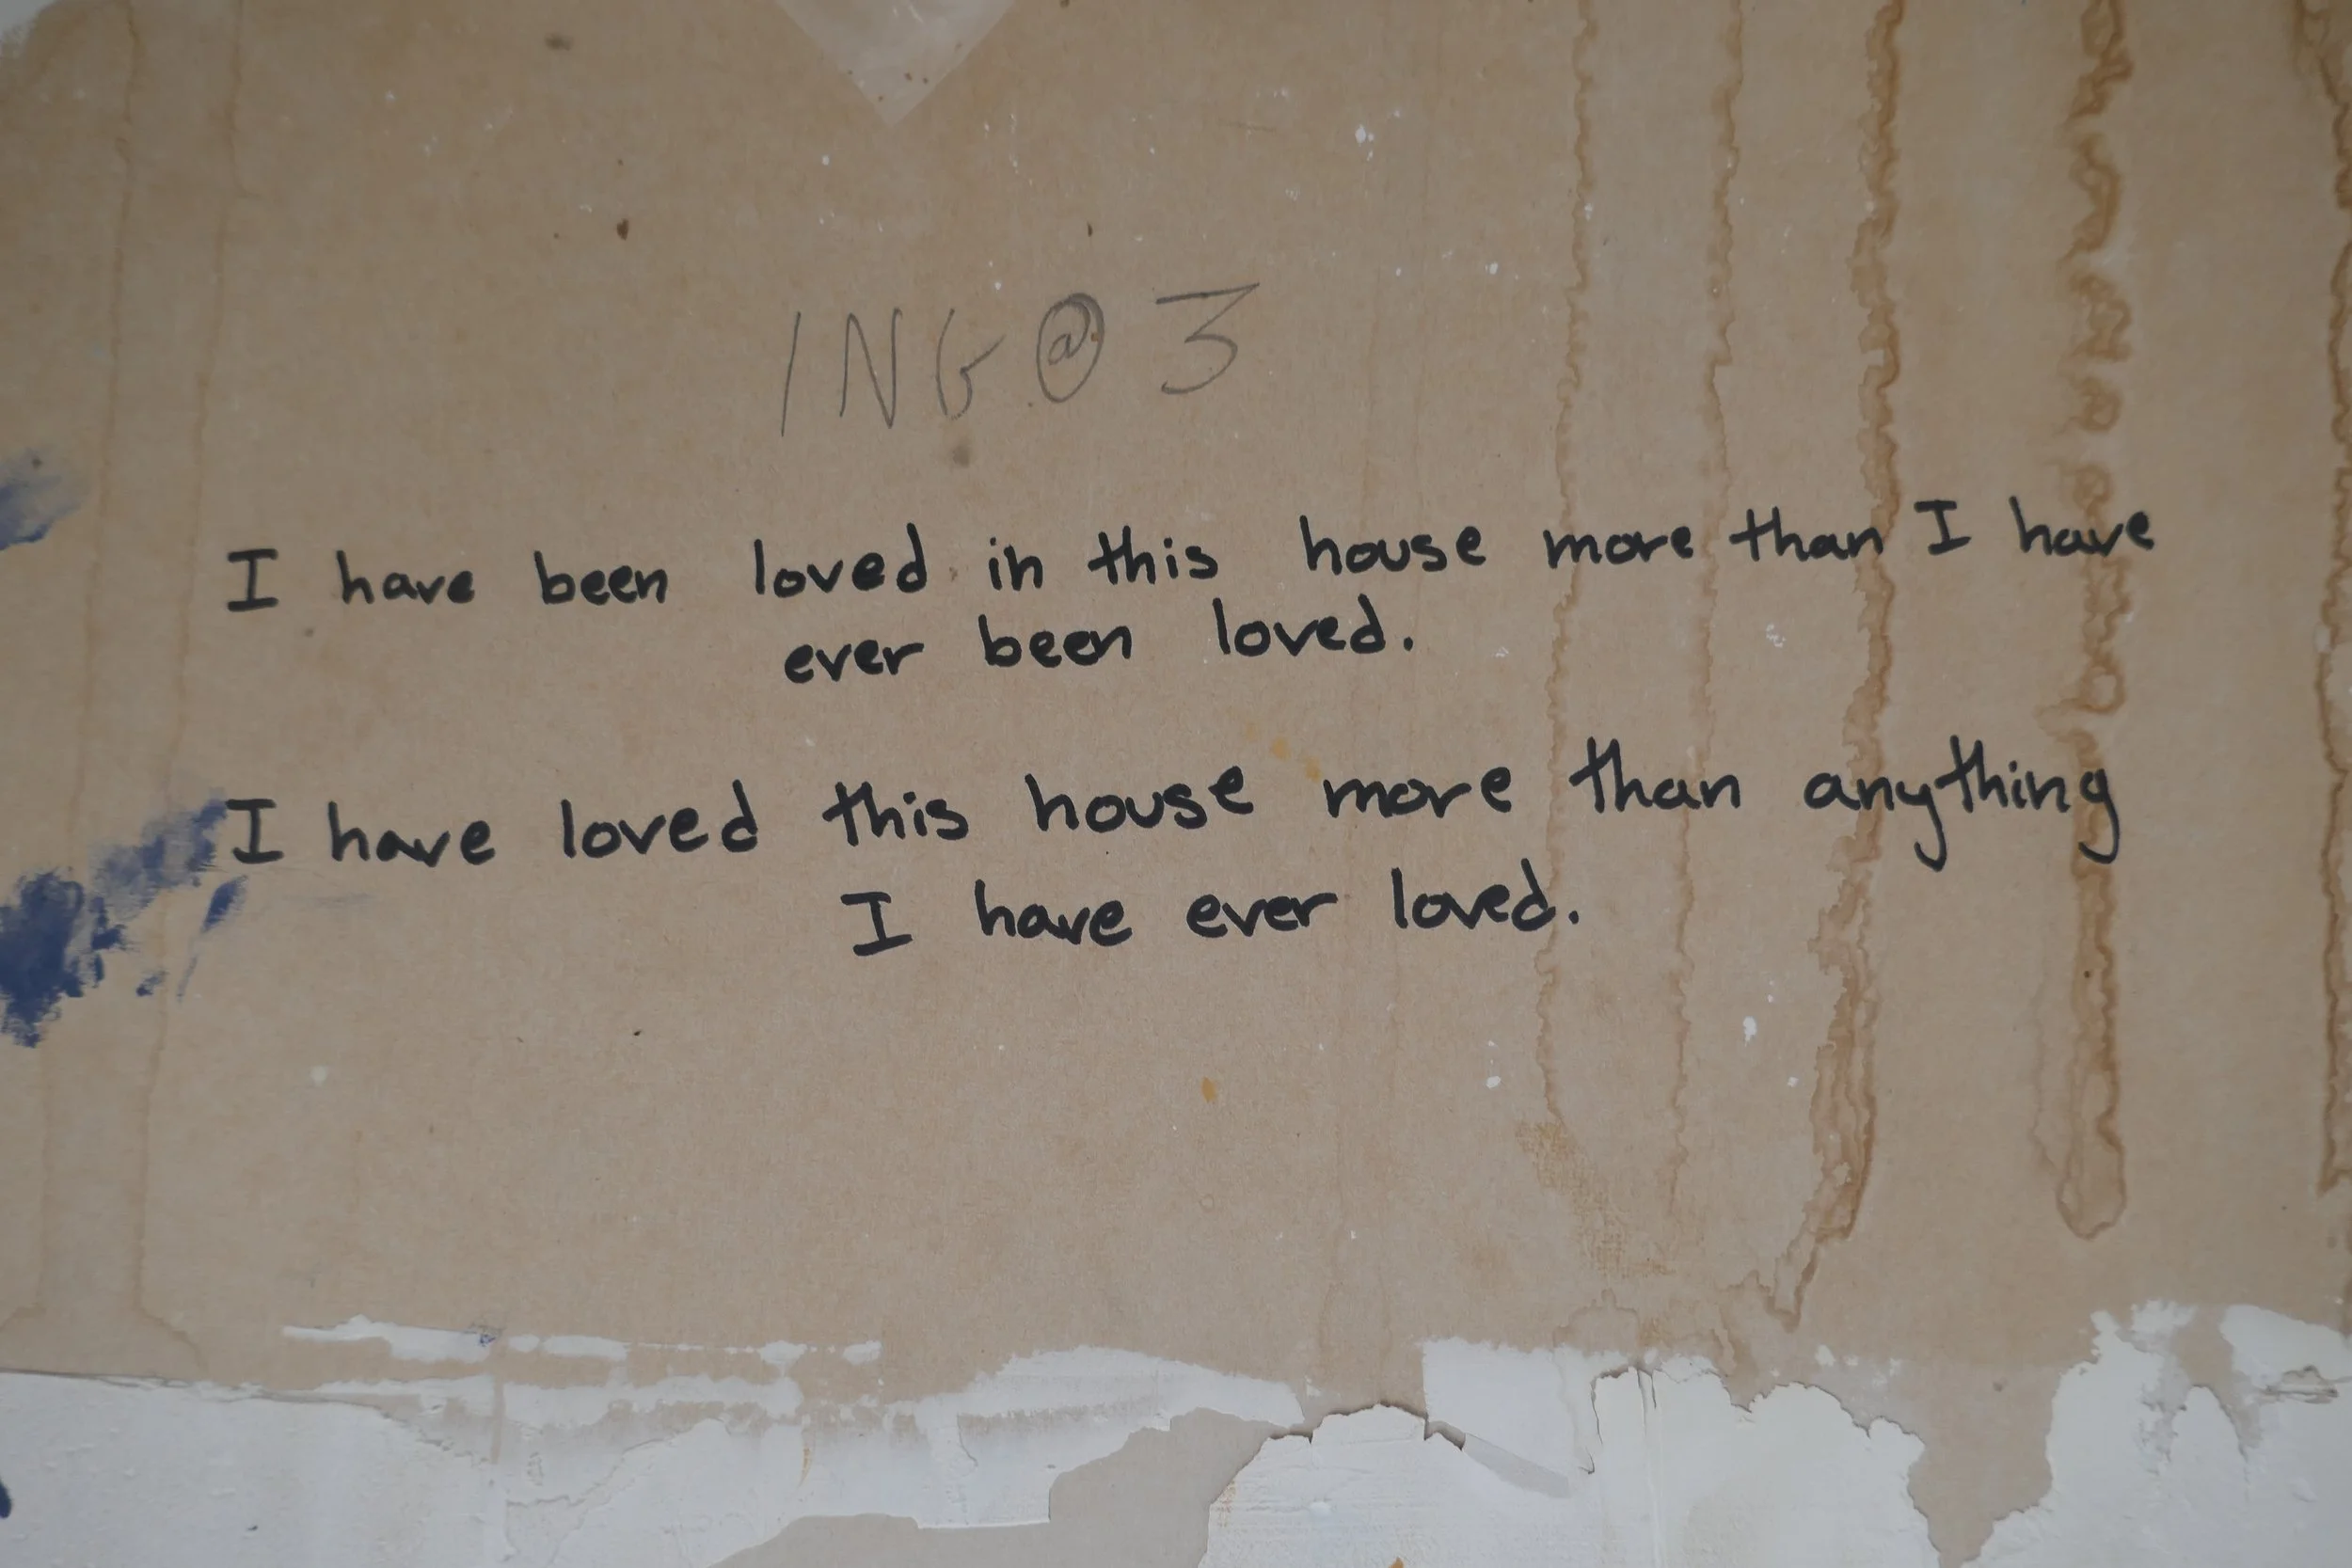 ING @ 3
I have been loved in this house more than I have
ever been loved.
I have loved this house more than anything
I have ever loved.